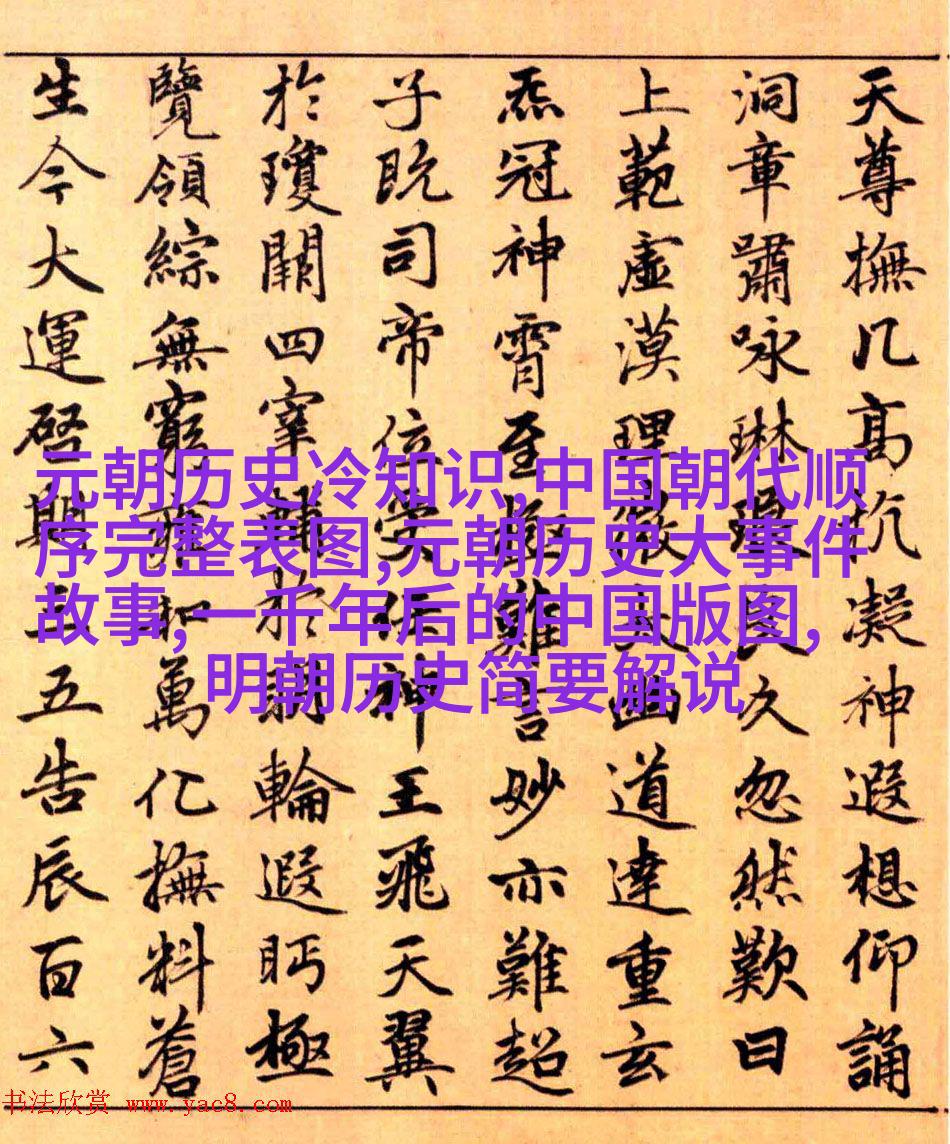 天尊撫几高抗凝神遐想仰誦
洞章嘯咏琳良久忽然歎曰
上範虛漠理太幽道達重玄
炁冠神霄至極難言妙亦難超
子既司帝位受任神王飛天翼
於瓊闕四宰輔於明輪遐眄極
覽領綜無窮雍和萬化撫料蒼
生今大運啓期三五告辰百六
元朝历史冷知识,中国朝代顺
序完整表图,元朝历史大事件
故事,一千年后的中国版图,
明朝历史简要解说
书法欣赏 www.yac8.com